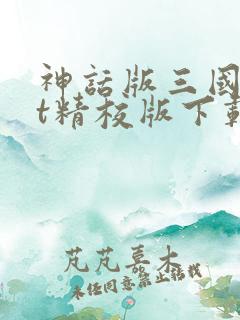 神話版三國
t精校版下載
芃芃慕木
未任同意禁止转载